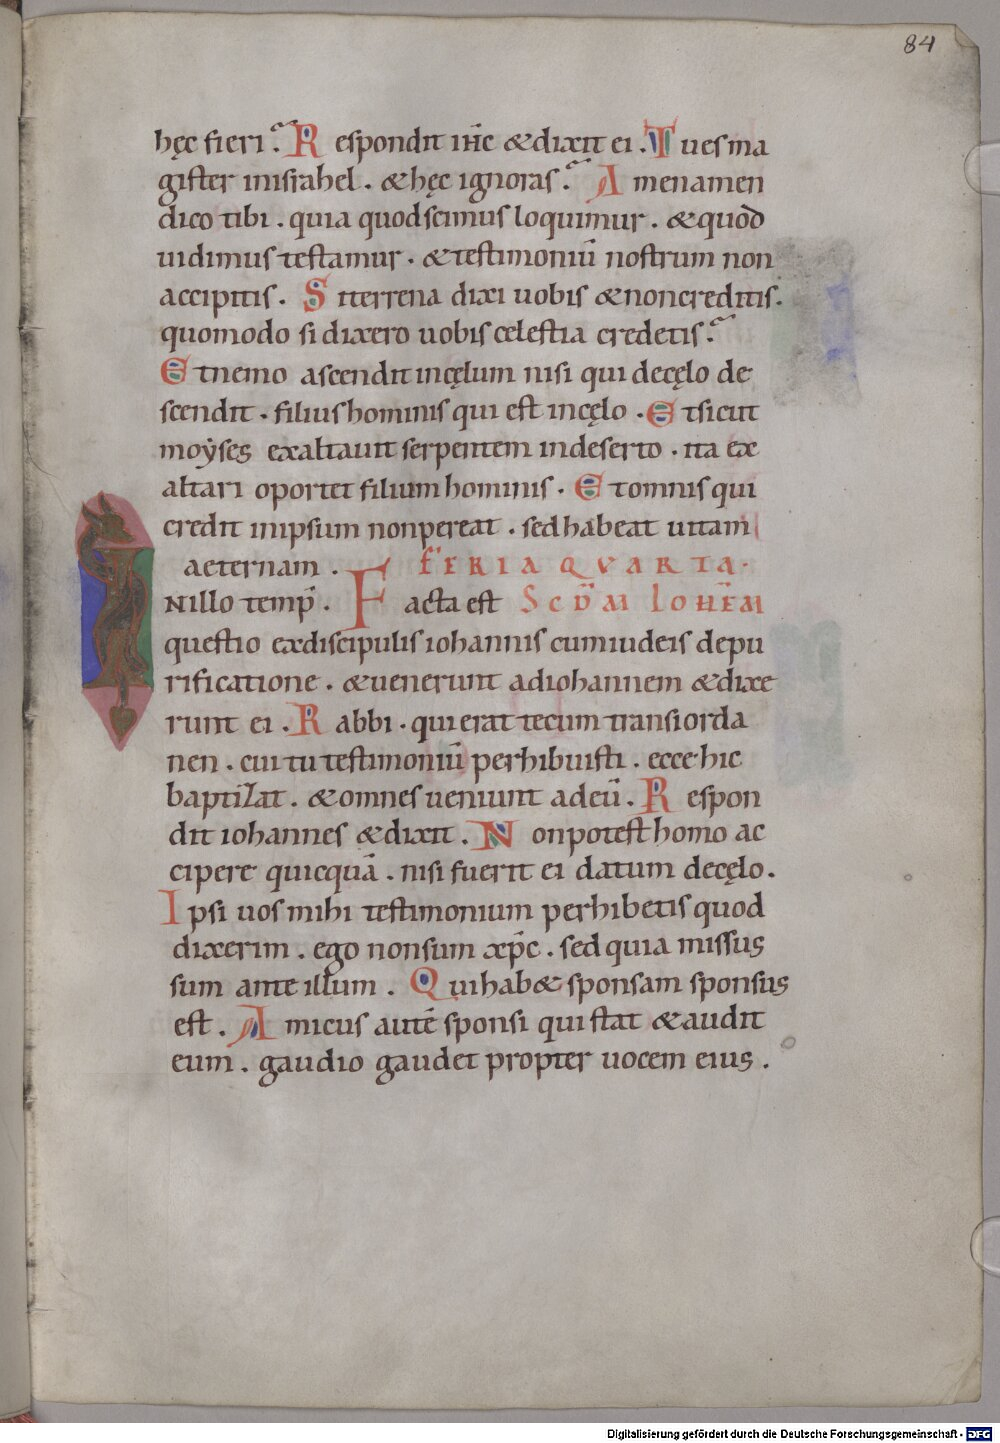 84
hęc fieri? Respondit ihc̄ & dixit ei. Tu es ma
gister in israhel. & hęc ignoras? Amen amen
dico tibi. quia quod scimus loquimur. & quod
uidimus testamur. & testimoniū nostrum non
accipitis. Si terrena dixi uobis & non creditis.
quomodo si dixero uobis celestia credetis?
Et nemo ascendit in cęlum nisi qui de cęlo de
scendit. filius hominis qui est in cęlo. Et sicut
moẏses exaltauit serpentem in deserto. ita ex
altari oportet filium hominis. Et omnis qui
credit in ipsum non pereat. sed habeat uitam
aeternam. FERIA QVARTA.
IN illo temp̄. Facta est SCDM IOHEM
questio ex discipulis iohannis cum iudeis de pu
rificatione. & uenerunt ad iohannem & dixe
runt ei. Rabbi. qui erat tecum trans iorda
nen. cui tu testimoniū perhibuisti. ecce hic
baptizat. & omnes ueniunt ad eū. Respon
dit iohannes & dixit. Non potest homo ac
cipere quicquā. nisi fuerit ei datum de cęlo.
Ipsi uos mihi testimonium perhibetis quod
dixerim. ego non sum xp̄c. sed quia missus
sum ante illum. Qui hab& sponsam sponsus
est. Amicus autē sponsi qui stat & audit
eum. gaudio gaudet propter uocem eius.
Digitalisierung gefördert durch die Deutsche Forschungsgemeinschaft - DFG